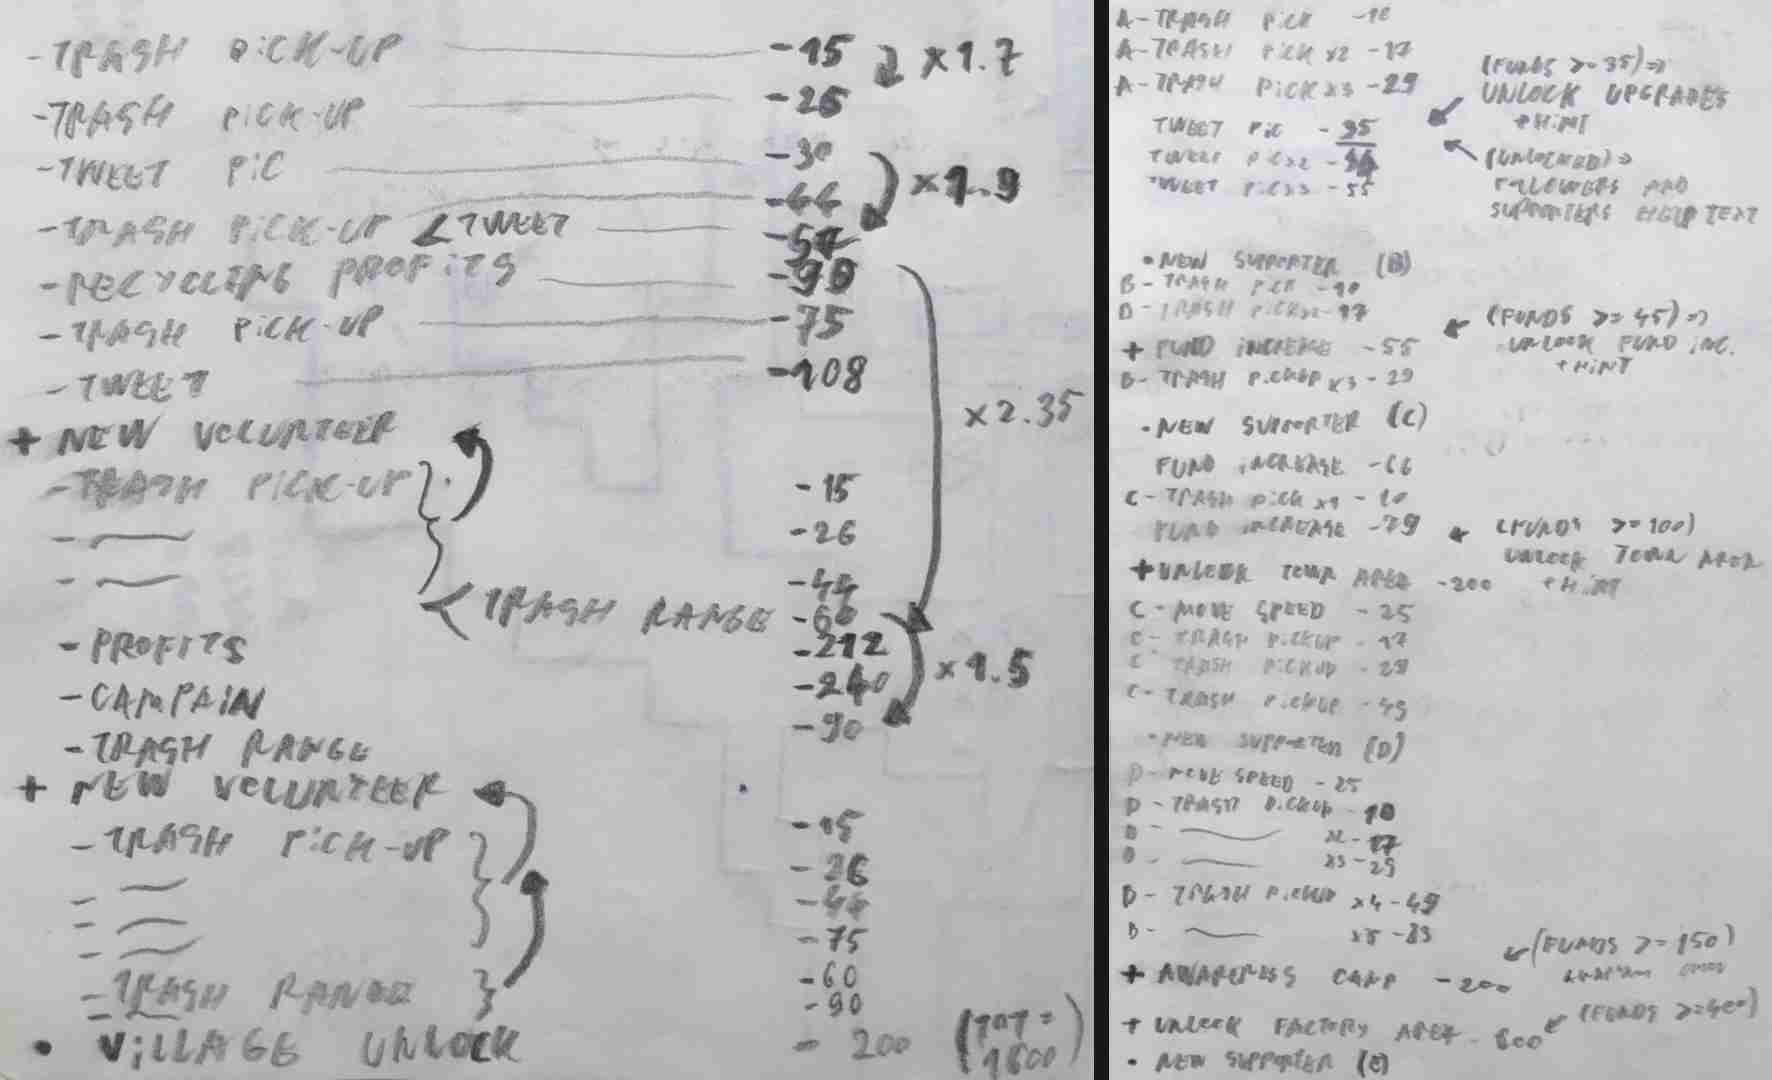 - TRASH PICK-UP - 15 ×1.7
- TRASH PICK-UP - 26
- TWEET PIC - 30 ×1.9
- 44
- TRASH PICK-UP < TWEET - 57
- RECYCLING PROFITS - 90
- TRASH PICK-UP - 75
- TWEET - 108
×2.35
+ NEW VOLUNTEER
- TRASH PICK-UP - 15
- - 26
- - 44
< TRASH RANGE - 60
- PROFITS - 212
- CAMPAIN - 240 ×1.5
- TRASH RANGE - 90
+ NEW VOLUNTEER
- TRASH PICK-UP - 15
- - 26
- - 44
- - 75
- TRASH RANGE - 60
- - 90
• VILLAGE UNLOCK - 200 (TOT = 1800)
A - TRASH PICK - 10
A - TRASH PICK x2 - 17
A - TRASH PICK x3 - 29
TWEET PIC - 35
TWEET PIC x2 - 44
TWEET PIC x3 - 55
(FUNDS >= 35) =>
UNLOCK UPGRADES
+ HINT
(UNLOCKED) =>
FOLLOWERS AND
SUPPORTERS HELP TEXT
• NEW SUPPORTER (B)
B - TRASH PICK - 10
B - TRASH PICK x2 - 17
+ FUND INCREASE - 55
B - TRASH PICKUP x3 - 29
(FUNDS >= 45) =>
UNLOCK FUND INC.
+ HINT
• NEW SUPPORTER (C)
FUND INCREASE - 66
C - TRASH PICK x1 - 10
FUND INCREASE - 79
(FUNDS >= 100)
UNLOCK TOWN AREA
+ HINT
+ UNLOCK TOWN AREA - 200
C - MOVE SPEED - 25
C - TRASH PICKUP - 17
C - TRASH PICKUP - 29
C - TRASH PICKUP - 49
• NEW SUPPORTER (D)
D - MOVE SPEED - 25
D - TRASH PICKUP - 10
D - x2 - 17
D - x3 - 29
D - TRASH PICKUP x4 - 49
D - x5 - 83
(FUNDS >= 150)
+ AWARENESS CAMP - 200
(FUNDS >= 400)
+ UNLOCK FACTORY AREA - 800
• NEW SUPPORTER (E)